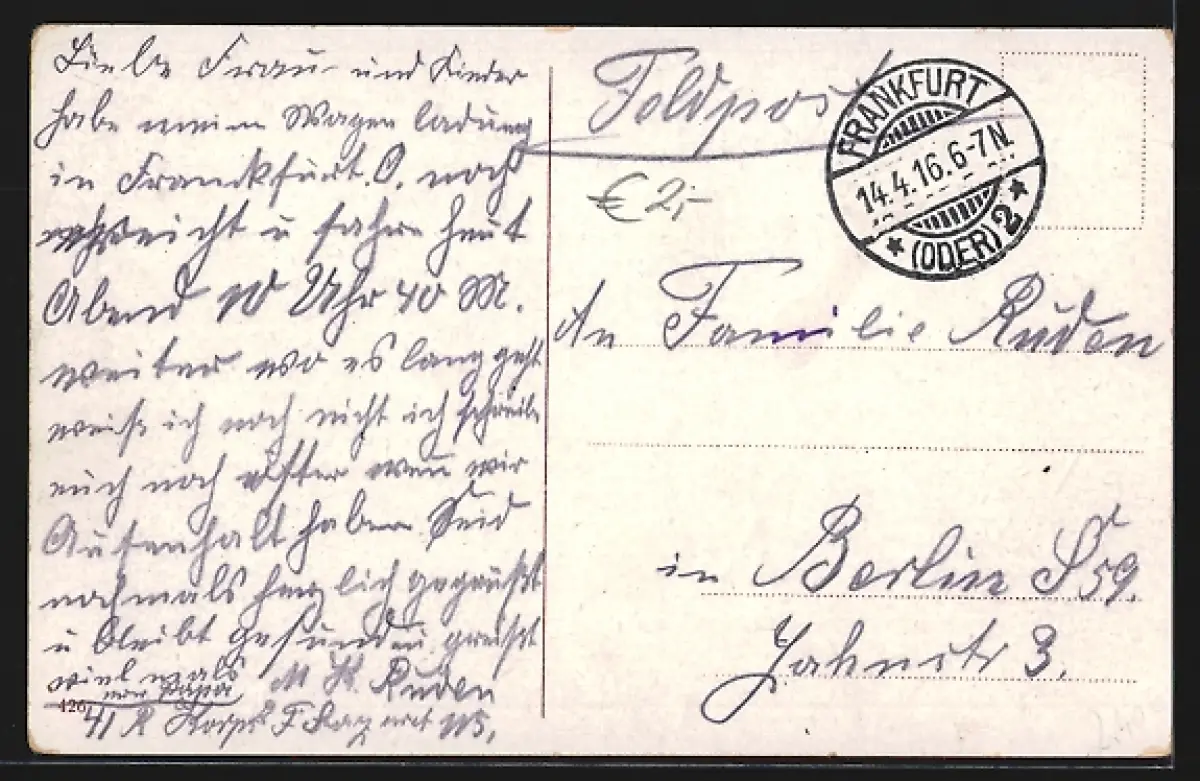 Liebe Frau und Kinder
habe meine Wagen ladung
in Franckfurt. O. noch
reicht u fahre heut
Abend 10 Uhr 40 M.
weiter wo es lang geht
weiß ich noch nicht ich schreibe
euch noch öfter wen wir
Aufenhalt haben Seid
nochmals herzlich gegrüßt
u bleibt gesund
viel mals
von Papa
Ruden
41 R Korps
126
Feldpost
€ 2,-
FRANKFURT
14.4.16.6-7N.
* (ODER) 2 *
An Familie Ruden
in Berlin S 59.
Jahnstr 3.